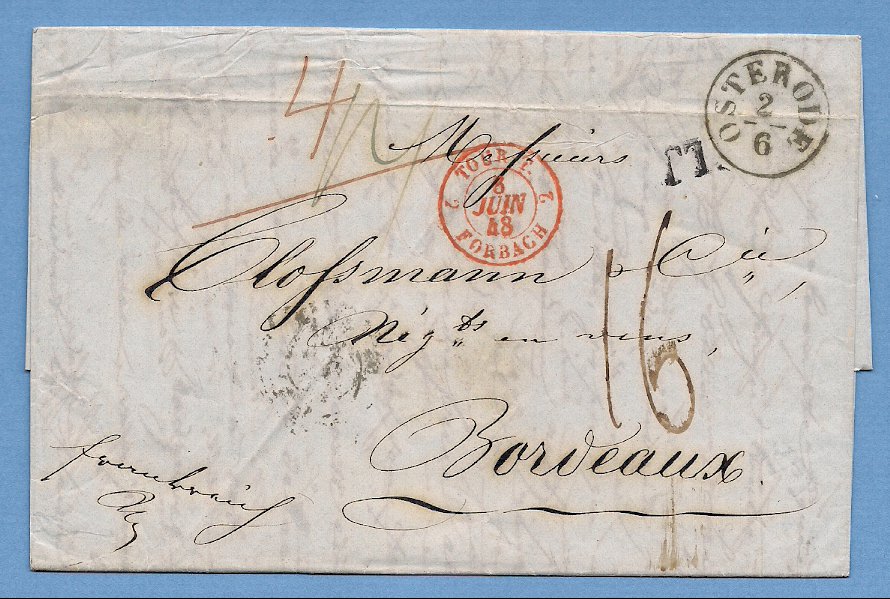 OSTERODE
2
6
4
Messieurs
TOUR F.
2 2
8
JUIN
48
FORBACH
Clossmann & Cie,
Négts en vins,
16
Bordeaux